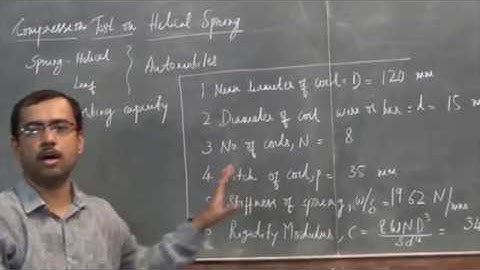 Compression Test on Helical Spring
Spring - Helical
Leaf
Automobiles
capacity
1 Mean diameter of coil = D = 120 mm
2 Diameter of coil wire or bar = d = 15 mm
3 No of coils, N = 8
4 Pitch of coil, p = 35 mm
Stiffness of spring, W/δ = 19.62 N/mm
Rigidity Modulus, C = 8WND³/δd⁴ = 34